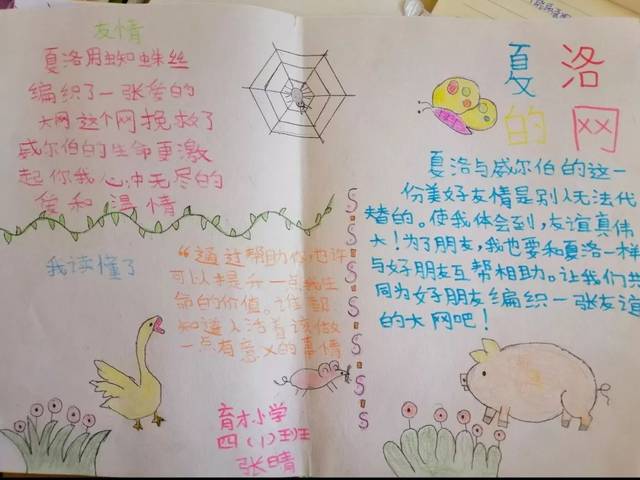 友情
夏洛用蜘蛛丝
编织了一张爱的
大网这个网挽救了
威尔伯的生命更激
起你我心冲无尽的
爱和温情
我读懂了
“通过帮助你,也许
可以提升一点我生
命的价值。谁都
知道人活着该做
一点有意义的事情
育才小学
四(1)班
张晴
夏洛
的网
夏洛与威尔伯的这一
份美好友情是别人无法代
替的。使我体会到,友谊真伟
大!为了朋友,我也要和夏洛一样
与好朋友互帮相助。让我们共
同为好朋友编织一张友谊
的大网吧!